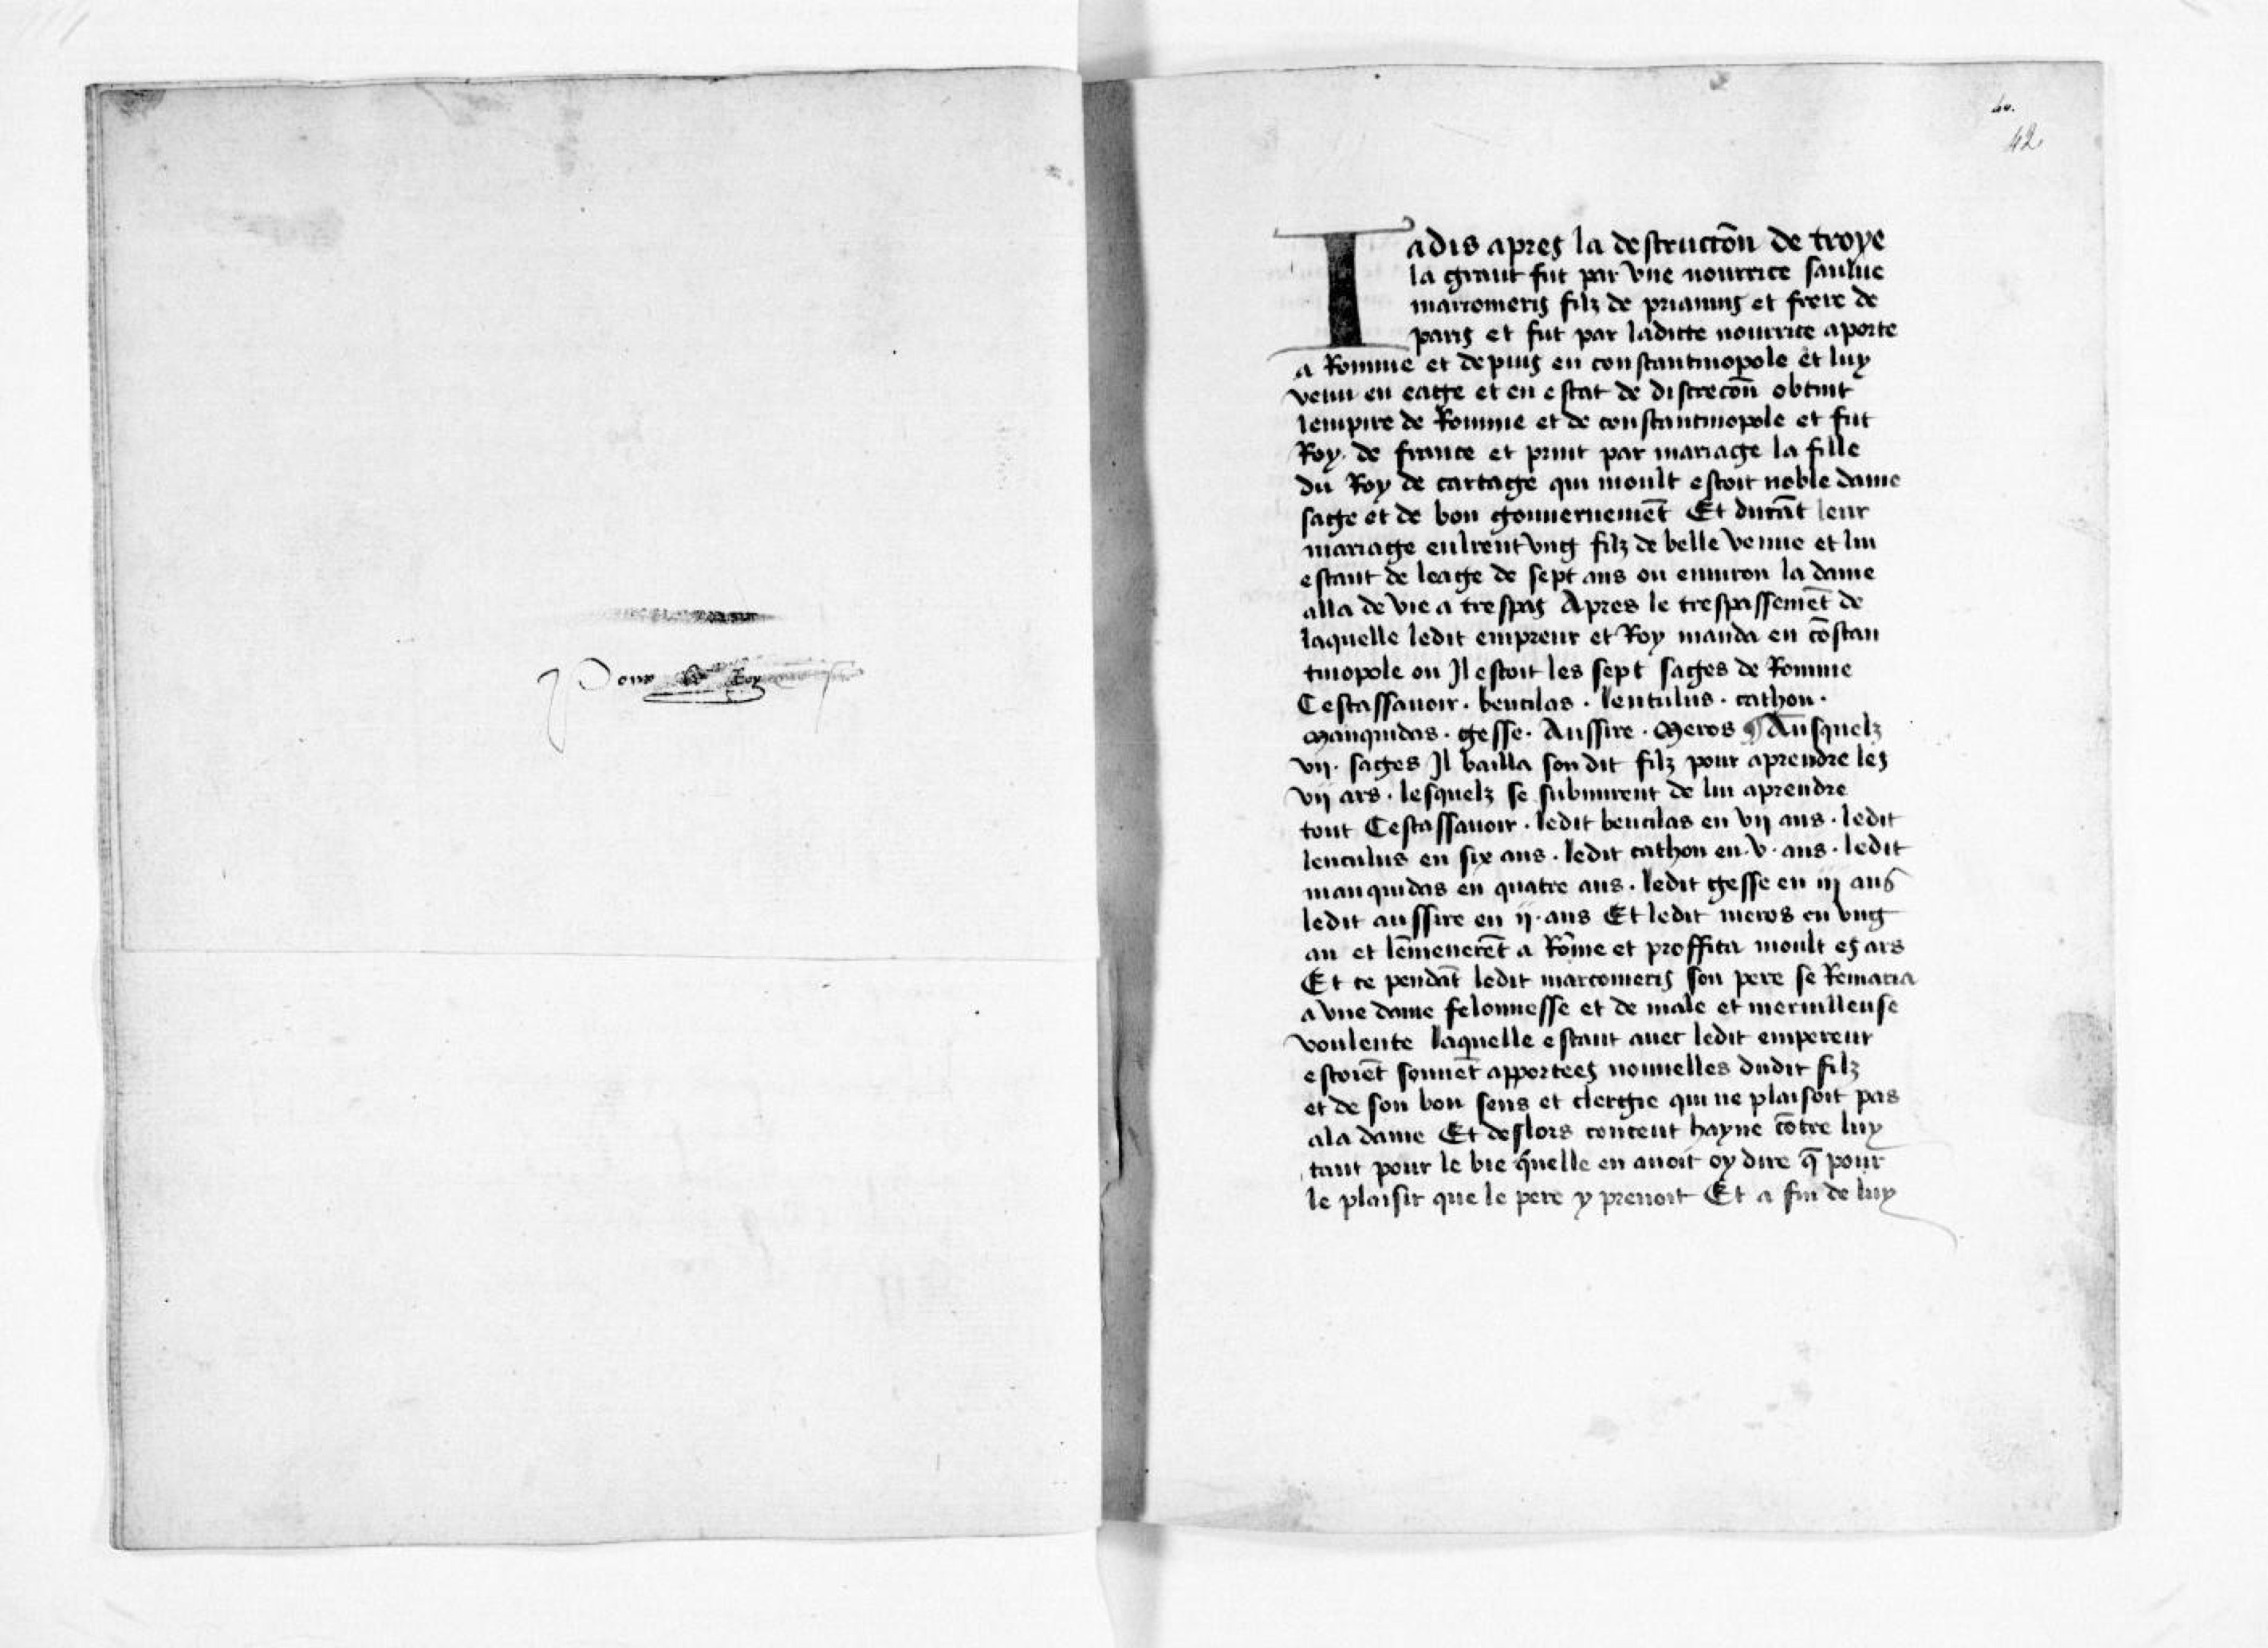 Pour le Roy
40.
42
Iadis apres la destructõn de troye
la grant fut par vne nourrice saulue
marcomeris filz de priamus et frere de
paris et fut par laditte nourrice aporte
a Romme et depuis en constantinopole et luy
venu en eage et en estat de discrecõn obtint
lempire de Romme et de constantinopole et fut
Roy de france et print par mariage la fille
du Roy de cartage qui moult estoit noble dame
sage et de bon gouuernemẽt Et durãt leur
mariage eulrent vng filz de belle venue et lui
estant de leage de sept ans ou enuiron la dame
alla de vie a trespas Apres le trespassemẽt de
laquelle ledit empereur et Roy manda en cõstan
tinopole ou Il estoit les sept sages de Romme
Cestassauoir . bencilas . lentulus . cathon .
Manquidas . gesse . Aussire . Meros ¶ Ausquelz
vij . sages Il bailla son dit filz pour aprendre les
vij ars . lesquelz se submirent de lui aprendre
tout Cestassauoir . ledit bencilas en vij ans . ledit
lentulus en six ans . ledit cathon en . v . ans . ledit
manquidas en quatre ans . ledit gesse en iij ans
ledit aussire en ij . ans Et ledit meros en vng
an et lẽmenerẽt a Rõme et proffita moult es ars
Et ce pendãt ledit marcomeris son pere se Remaria
a vne dame felonnesse et de male et merueilleuse
voulente laquelle estant auec ledit empereur
estoiẽt souuẽt apportees nouuelles dudit filz
et de son bon sens et clergie qui ne plaisoit pas
ala dame Et deslors conceut hayne cõtre luy
tant pour le bie quelle en auoit oy dire q̃ pour
le plaisir que le pere y prenoit Et a fin de luy